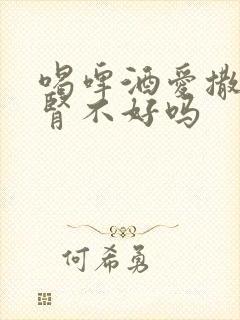 喝啤酒爱撒
肾不好吗
何希勇